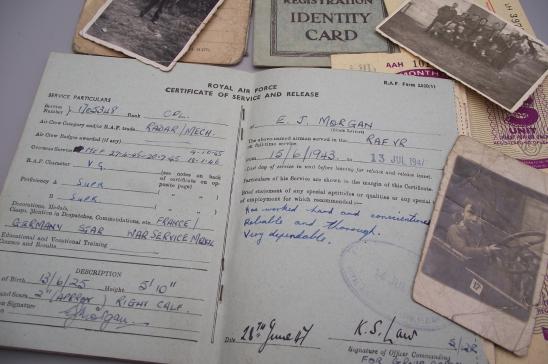 REGISTRATION
IDENTITY
CARD
AAH
MONTH
UNIT
ROYAL AIR FORCE
CERTIFICATE OF SERVICE AND RELEASE
R.A.F. Form 2520
SERVICE PARTICULARS
Service
Number
Rank CPL.
Air Crew Category and/or R.A.F. trade RADAR/MECH.
Air Crew Badges awarded (if any)
Overseas Service
R.A.F. Character V.G.
(see notes on back
of certificate on op-
posite page)
Proficiency A SUPR
B SUPR
Decorations, Medals,
Clasps, Mention in Despatches, Commendations, etc. FRANCE/
GERMANY STAR WAR SERVICE MEDAL
Educational and Vocational Training
Courses and Results
DESCRIPTION
of Birth 13/6/25 Height 5'10"
2" (APPROX) RIGHT CALF
Signature
E. J. MORGAN
(Block Letters)
The above-named airman served in the RAFVR
on full-time service,
from 15/6/1943 to 13 JUL 1947
(Last day of service in unit before leaving for release and release leave).
Particulars of his Service are shown in the margin of this Certificate.
Brief statement of any special aptitudes or qualities or any special
types of employment for which recommended :—
Has worked hard and conscientiously
Reliable and thorough.
Very dependable.
Date 26th June 47
K.S. Law
S/LDR
Signature of Officer Commanding
17